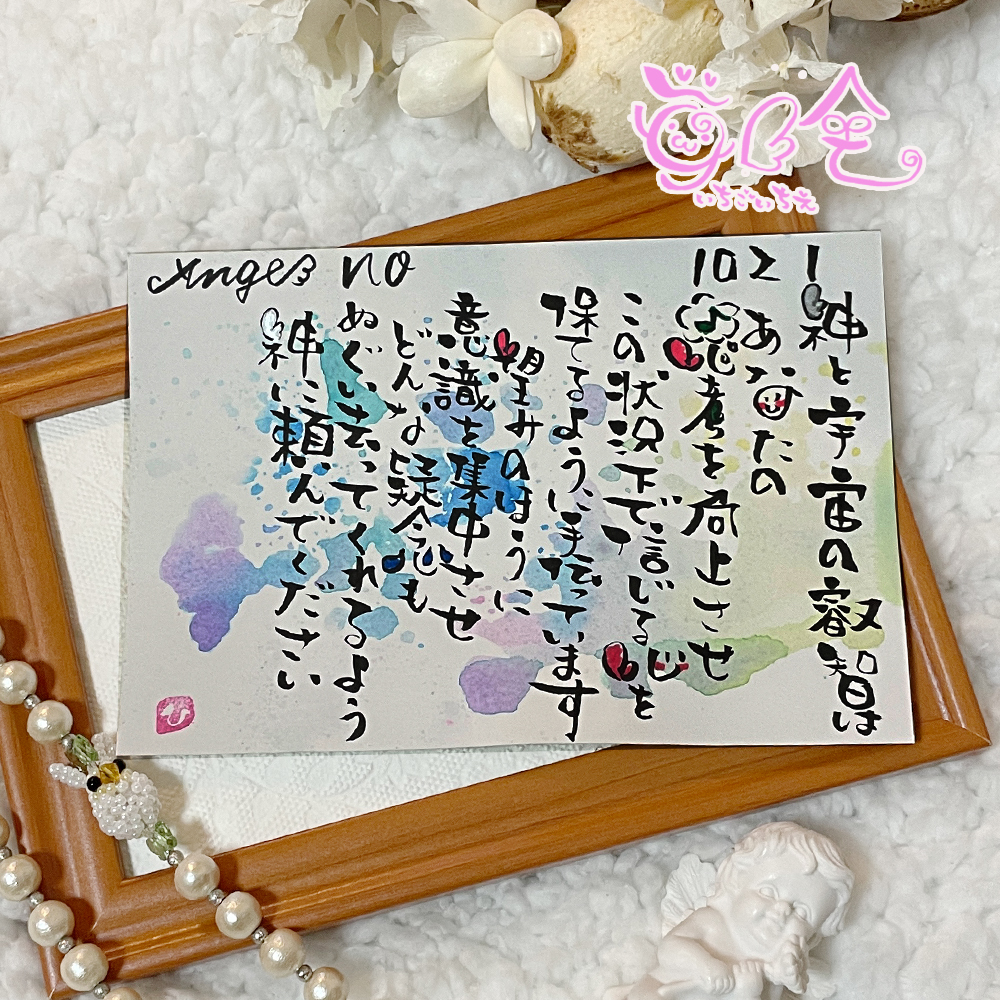 Angel NO 1021
神と宇宙の叡智は
あなたの
思考を向上させ
この状況下で信じる心を
保てるように手伝っています
望みのほうに
意識を集中させ
どんな疑念も
ぬぐい去ってくれるよう
神に頼んでください
ひ
いちごいちえ